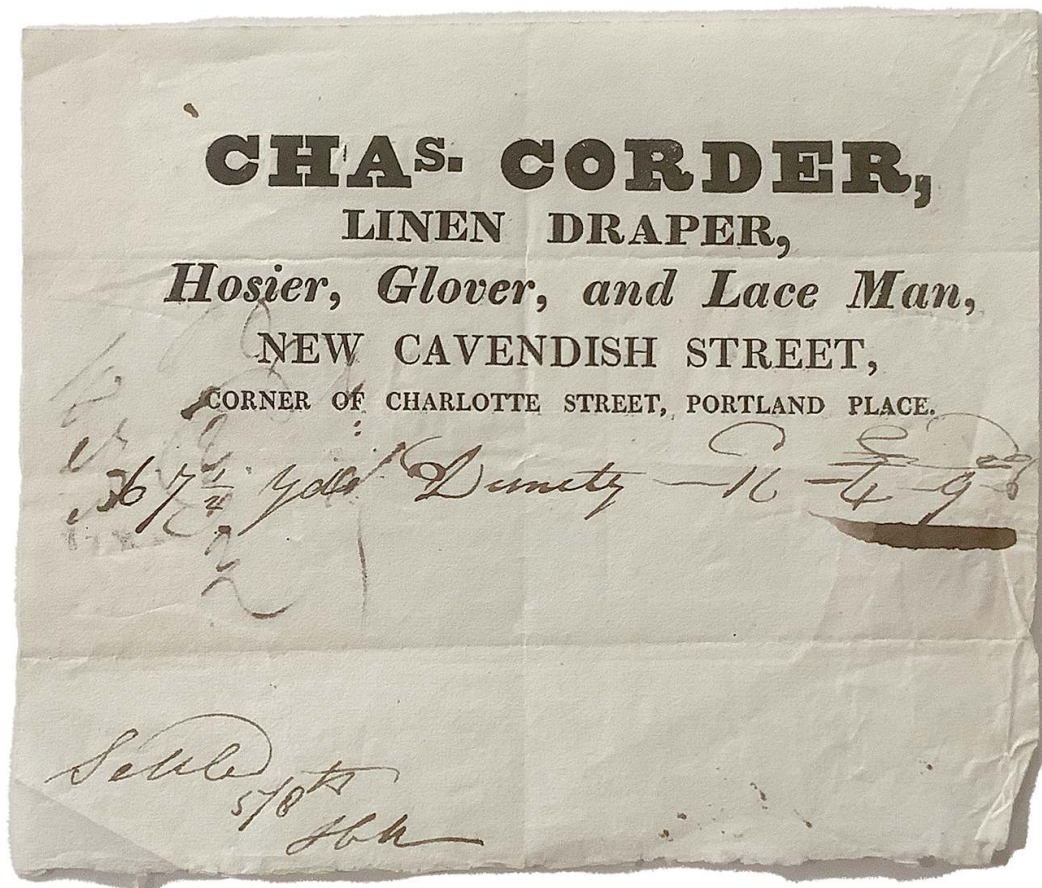 CHAS. CORDER,
LINEN DRAPER,
Hosier, Glover, and Lace Man,
NEW CAVENDISH STREET,
CORNER OF CHARLOTTE STREET, PORTLAND PLACE.
7 1/4 yds Dimity — — 4 — 9
Settled
5/8th